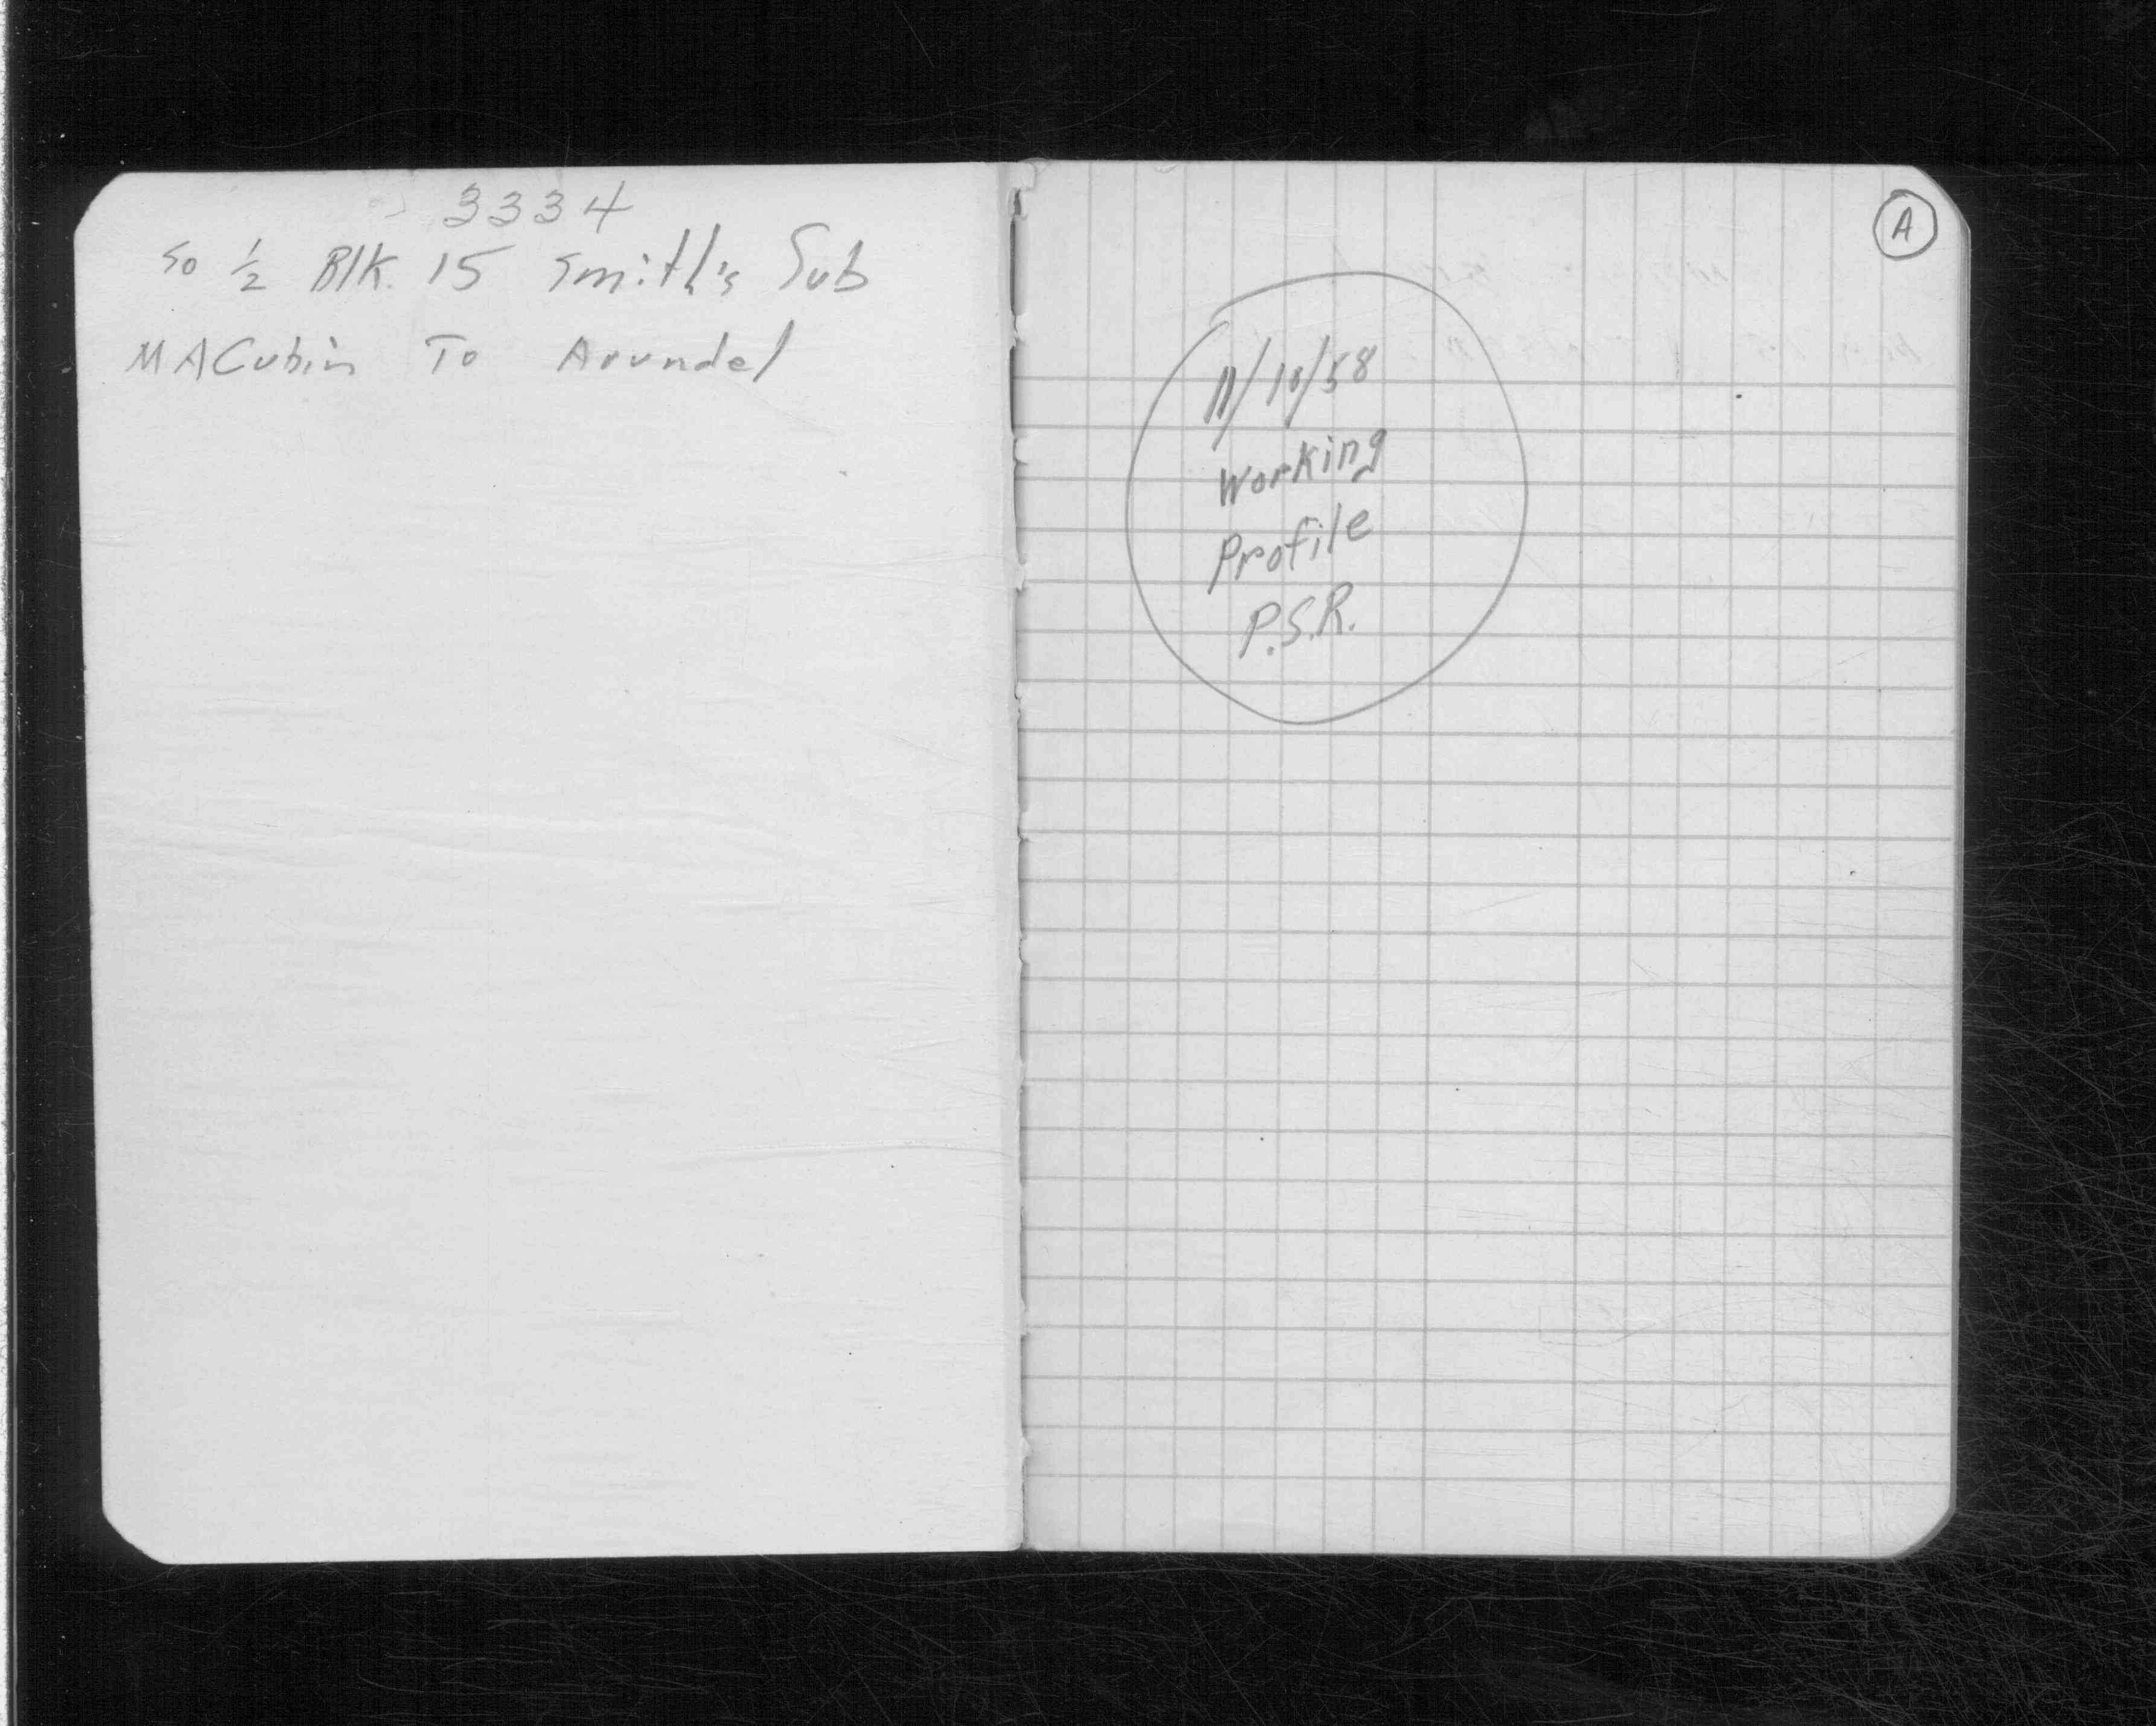 3334
So ½ Blk. 15 Smith's Sub
MACubin To Arundel
A
11/10/58
Working
Profile
P.S.R.